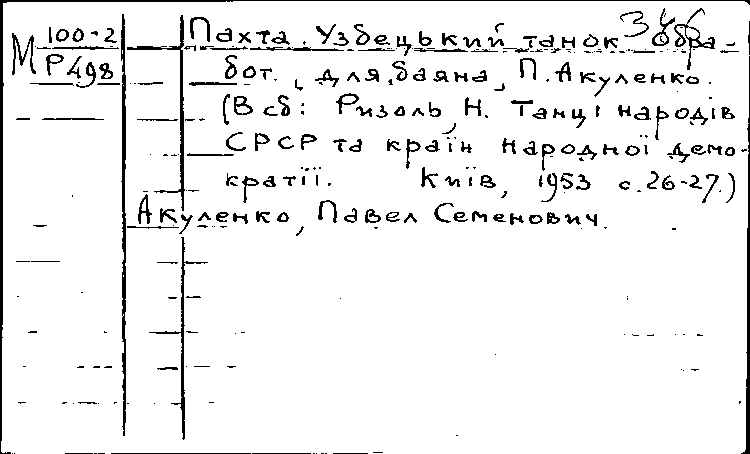 346
М 100-2
Р498
Пахта. Узбецький танок. Обра-
бот. для баяна, П. Акуленко.
(В сб: Ризоль, Н. Танці народів
СРСР та країн народної демо-
кратії. Київ, 1953 с. 26-27.)
Акуленко, Павел Семенович.